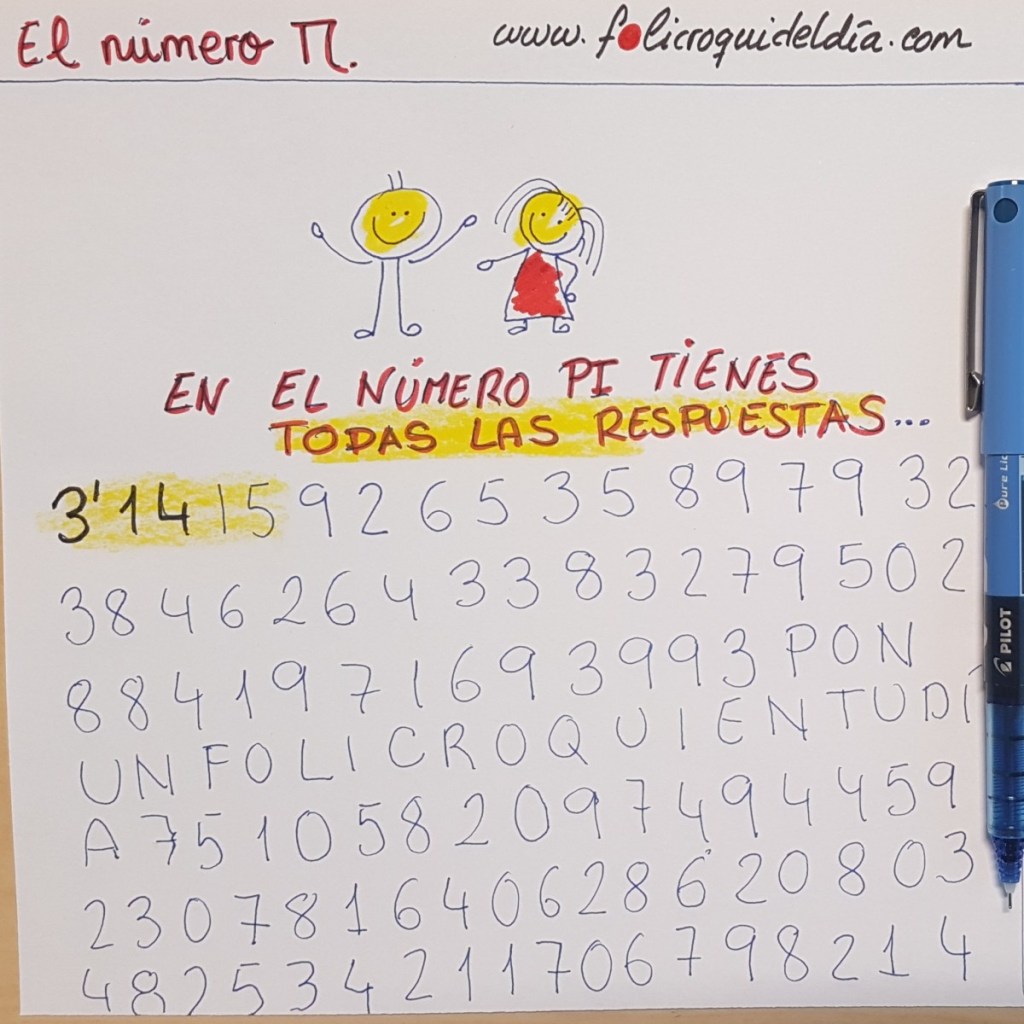 El número π.
www.folicroquideldía.com
EN EL NÚMERO PI TIENES
TODAS LAS RESPUESTAS...
3'14159265358979 32
3846264338327950 2
884197169 3993 PON
UNFOLICROQUIENTUDÍ
A 75105820974944459
230781640628620803
48253421170679821 4
Pure Liq
PILOT